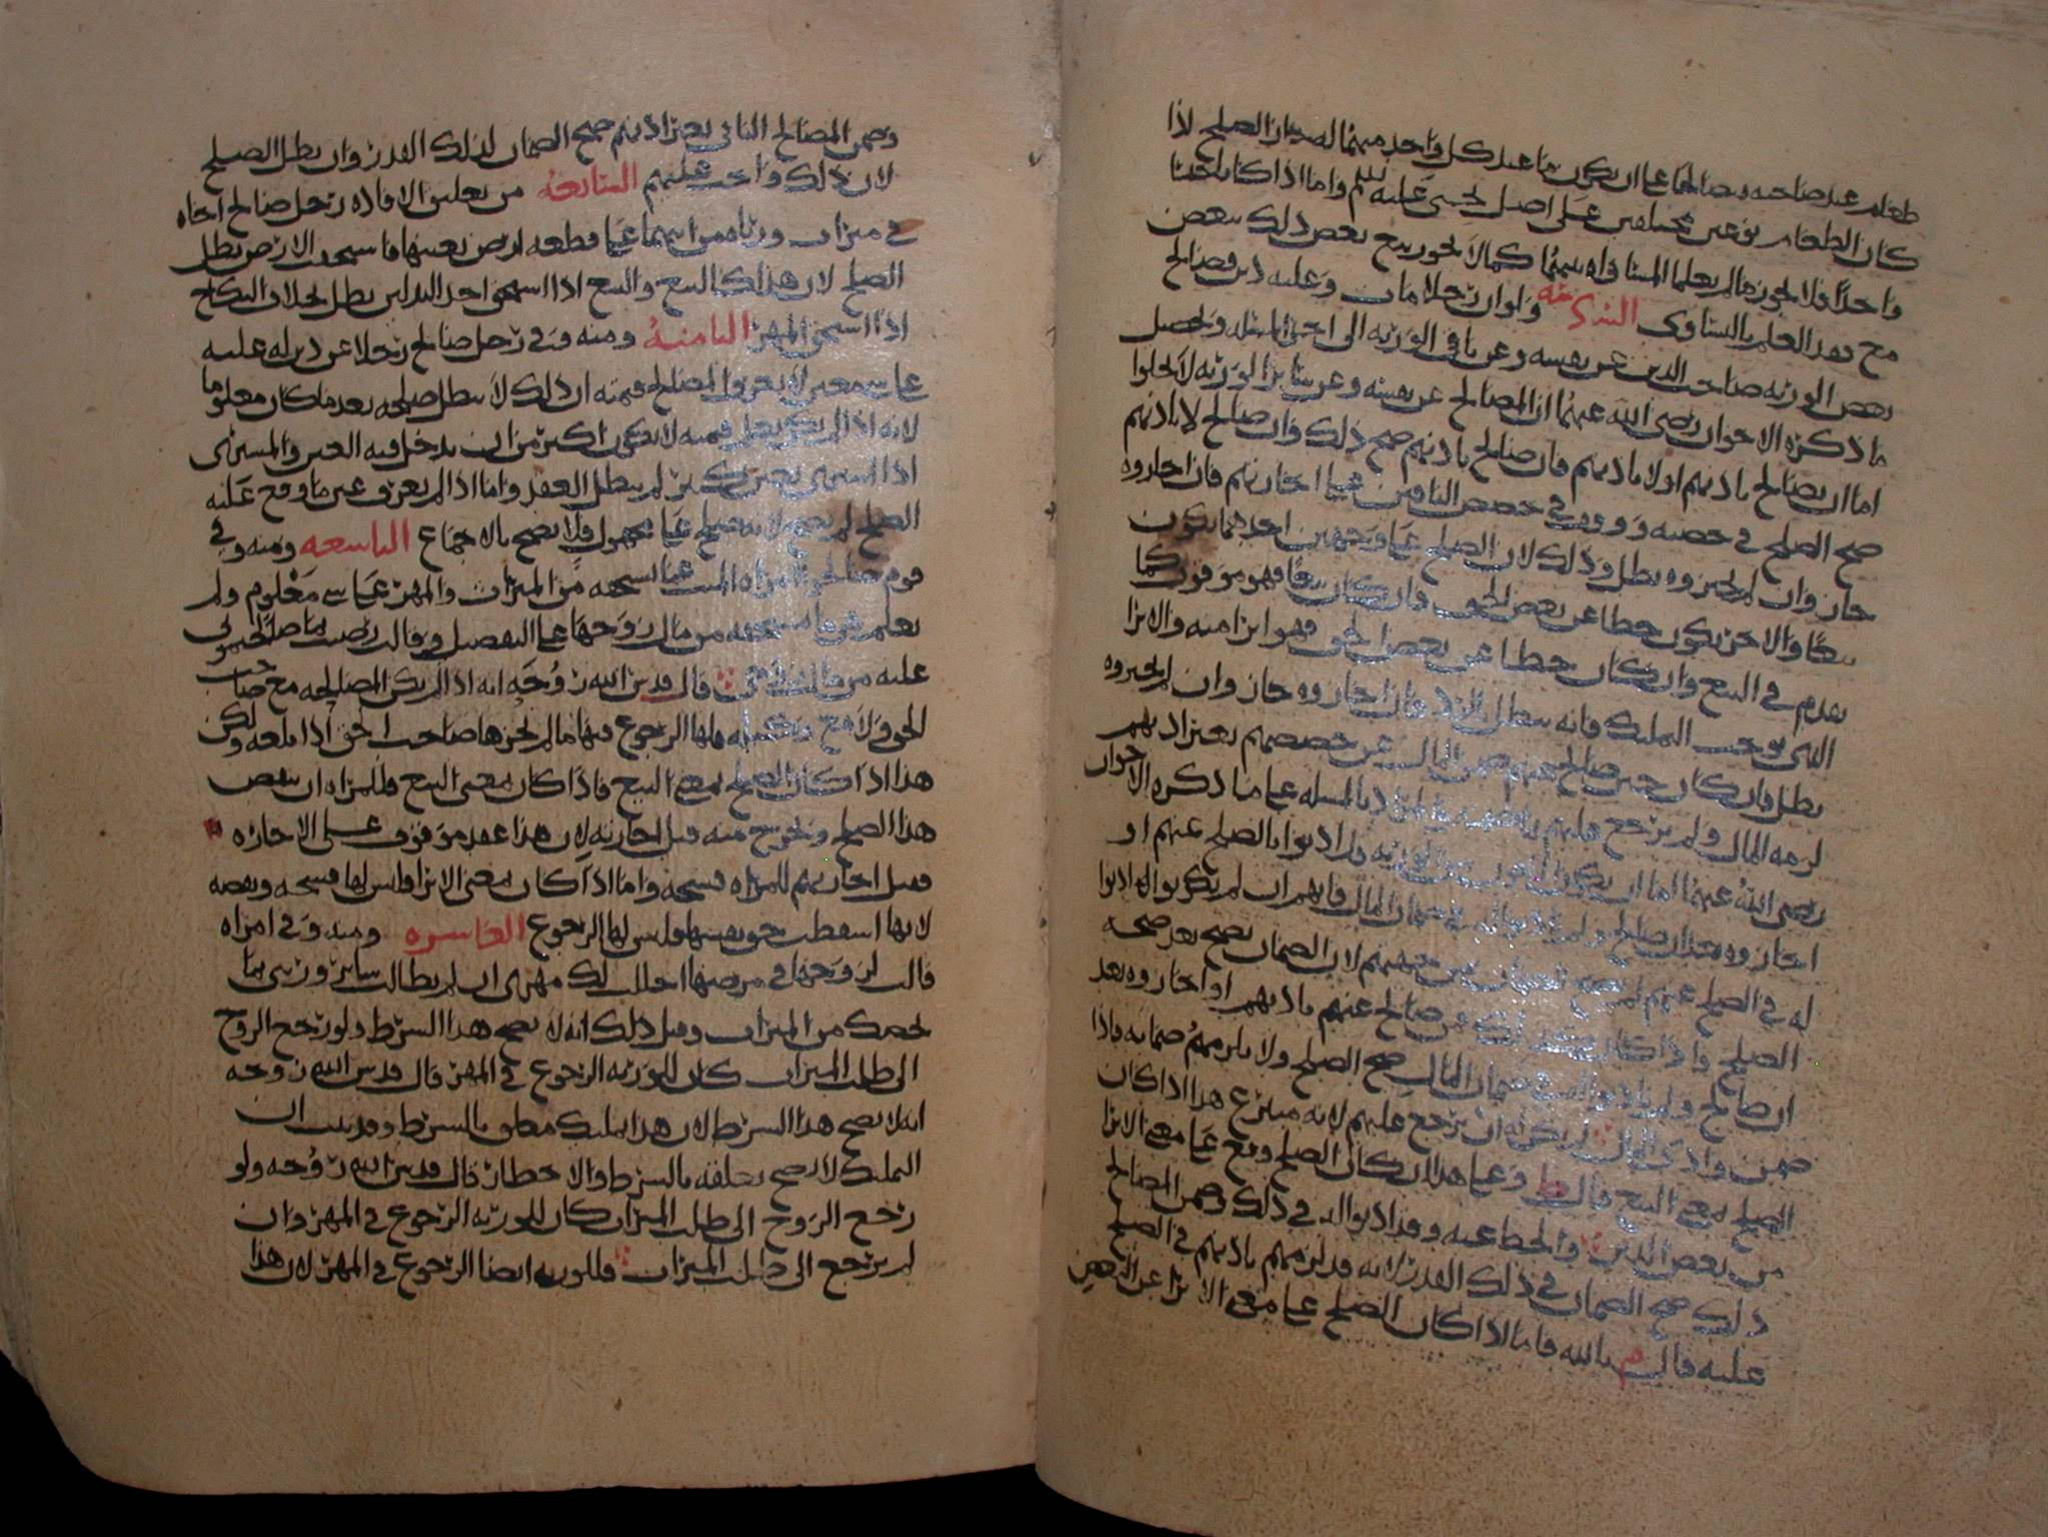 طعام عند صاحبه فصالحا على ان يكون ما عند كل واحد منهما لصاحبه جاز الصلح اذا
كان الطعام نوعين مختلفين على اصل يحيى عليه السلم واما اذا كانا جنسا
واحدا فلا يجوز ما لم يعلما المساواه بينهما كما لا يجوز بيع بعض ذلك ببعض
مع فقد العلم بالتساوي السادسة ولو ان رجلا مات وعليه دين فصالح
بعض الورثه صاحب الدين عن نفسه وعن باقي الورثه الى اخر المسئله وتحصيل
ما ذكره الاخوان رضي الله عنهما ان المصالح عن نفسه وعن سائر الورثه لا يخلوا
اما ان يصالح باذنهم او لا باذنهم فان صالح باذنهم صح ذلك وان صالح لا باذنهم
صح الصلح في حصته ووقف في حصص الباقين على اجازتهم فان اجازوه
جاز وان لم يجيزوه بطل وذلك لان الصلح على وجهين احدهما يكون
بيعا والاخر يكون حطا عن بعض الحق فان كان بيعا فهو موقوف كما
تقدم في البيع وان كان حطا عن بعض الحق فهو ابرا منه والابرا
الذي يوجب التمليك فانه يبطل بالرد فان اجازوه جاز وان لم يجيزوه
بطل فان كان حين صالح عنهم ضمن المال عن حصصهم بغير اذنهم
لزمه المال ولم يرجع عليهم
رضي الله عنهما اما ان يكون
اجازوه بعد ان صالح
له في الصلح عنهم لم يصح الضمان لان الضمان يصح بعد صحه
الصلح فاذا كان كذلك فمن صالح عنهم باذنهم او اجازوه بعد
ان صالح ولم ياذنوا له في ضمان المال صح الصلح ولا يلزمهم ضمانه فاذا
ضمن وادى المال لم يكن له ان يرجع عليهم لانه متبرع هذا اذا كان
الصلح بمعنى البيع قال ط وعلى هذا ان كان الصلح وقع على معنى الابرا
من بعض الدين والحط عنه وقد اذنوا له في ذلك وضمن المصالح
ذلك صح الضمان في ذلك القدر لانه قد لزمهم باذنهم في الصلح
عليه قال م بالله فاما اذا كان الصلح على معنى الابرا عن البعض
وضمن المصالح الباقي بغير اذنهم صح الضمان لذلك القدر وان بطل الصلح
لان ذلك واجب عليهم السابعه من تعليق الافاده رجل صالح اخاه
في ميراث ورثاه من ابيهما على قطعه ارض بعينها فاستحقت الارض بطل
الصلح لان هذا كالبيع والبيع اذا استحق احد البدلين بطل بخلاف النكاح
اذا استحق المهر الثامنة ومنه وفي رجل صالح رجلا عن دين له عليه
على شي معين لا يعرف المصالح قيمته ان ذلك لا يبطل صلحه بعد ما كان معلوما
لانه اذا لم يكن يعلم قيمته لا يكون اكثر من ان يدخل فيه الغبن والمشتري
اذا اشترى بغبن كثير لم يبطل العقد واما اذا لم يعرف عين ما وقع عليه
الصلح لم يصح لانه صلح على مجهول فلا يصح بالاجماع التاسعه ومنه وفي
قوم صالحوا امراه الميت عما تستحقه من الميراث والمهر على شي معلوم ولم
تعلم هي ما تستحقه من مال زوجها على التفصيل وقالت رضيت بما صالحتموني
عليه من مالي قال قدس الله روحه انه اذا لم يكن المصالحه مع صاحب
الحق ولا مع وكيله فلها الرجوع فيها ما لم يجزها صاحب الحق اذا بلغه ولكن
هذا اذا كان الصلح بمعنى البيع فاذا كان بمعنى البيع فللمراه ان تنقض
هذا الصلح وتخرج منه قبل اجازته لان هذا عقد موقوف على الاجازه
فقبل اجازتهم للمراه فسخه واما اذا كان بمعنى الابرا فليس لها فسخه ونقضه
لانها اسقطت حق نفسها وليس لها الرجوع العاشره ومنه وفي امراه
قالت لزوجها في مرضها احللت لك مهري ان لم تطالب سائر ورثتي بما
يخصك من الميراث وقبل ذلك انه لا يصح هذا الشرط ولو رجع الزوج
الى طلب الميراث كان للورثه الرجوع في المهر قال قدس الله روحه
انه لا يصح هذا الشرط لان هذا تمليك معلق بالشرط وقد ثبت ان
التمليك لا يصح تعليقه بالشرط والاخطار قال قدس الله روحه ولو
رجع الزوج الى طلب الميراث كان للورثه الرجوع في المهر وان
لم يرجع الى طلب الميراث فللورثه ايضا الرجوع في المهر لان هذا